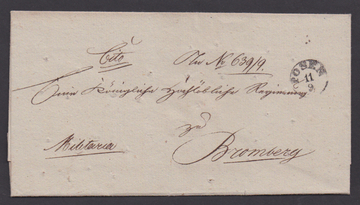 Cito
Nr. 639/9.
Eine Königliche Hochlöbliche Regierung
zu
Militaria
Bromberg
POSEN
11
9